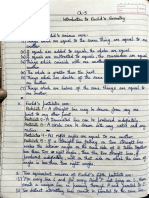 Ch-5
Introduction to Euclid's Geometry
1. Euclid's axioms are:
(i) Things which are equal to the same thing are equal to one
another
(ii) If equals are added to equals, the wholes are equal.
(iii) If equals are subtracted from equals, the remainders are equal.
(iv) Things which coincide with one another are equal to one
another
(v) The whole is greater than the part.
(vi) Things which are double of the same things are equal to
one another
(vii) Things which are halves of the same things are equal to one
another
2. Euclid's postulates are:
Postulate 1 - A straight line may be drawn from any one
point to any other point.
Postulate 2 - A terminated line can be produced indefinitely.
Postulate 3 - A circle can be drawn with any centre and any
radius.
Postulate 4 - All right angles are equal to one another.
Postulate 5 - If a straight line falling on two straight lines
makes the interior angles on the same side of it taken together
less than two right angles, then the two straight lines, if
produced indefinitely, meet on that side on which the sum of
angles is less than two right angles.
3. Two equivalent versions of Euclid's fifth postulate are:
(i) For every line l and for every point P not lying on l, there
exists a unique line m passing through P and parallel to l.
(ii) Two distinct intersecting lines cannot be parallel to the same